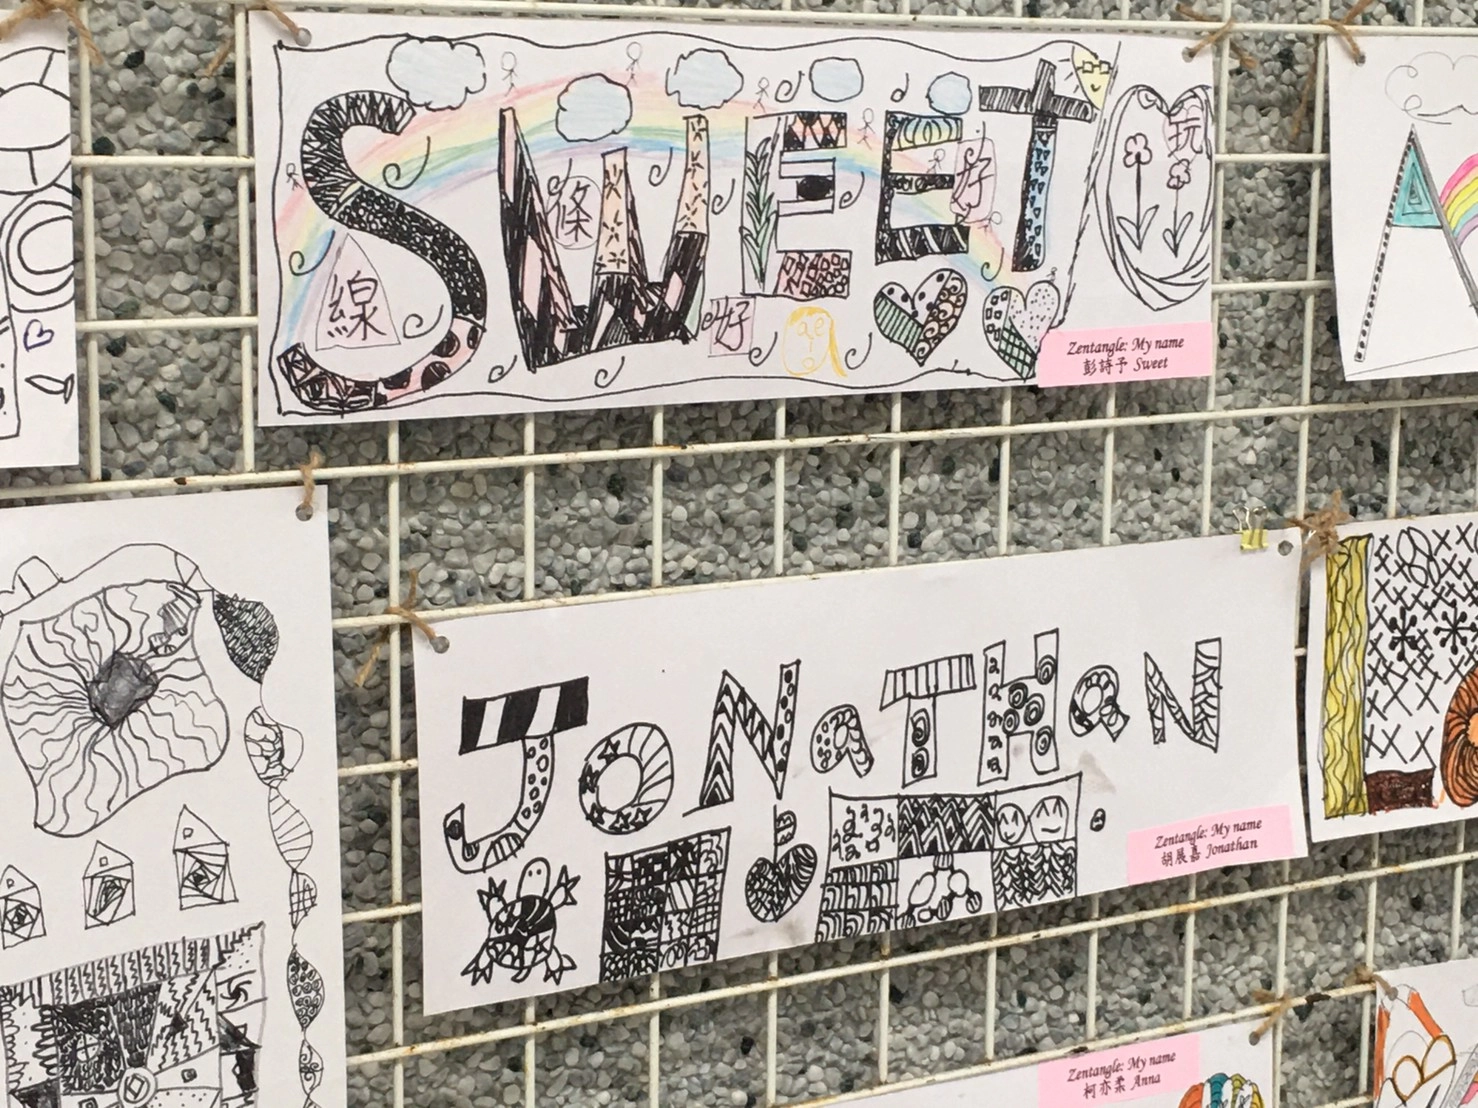 SWEET
線
條
好
好
玩
Zentangle: My name
彭詩予 Sweet
JONaTHaN
Zentangle: My name
胡展嘉 Jonathan
Zentangle: My name
柯亦柔 Anna